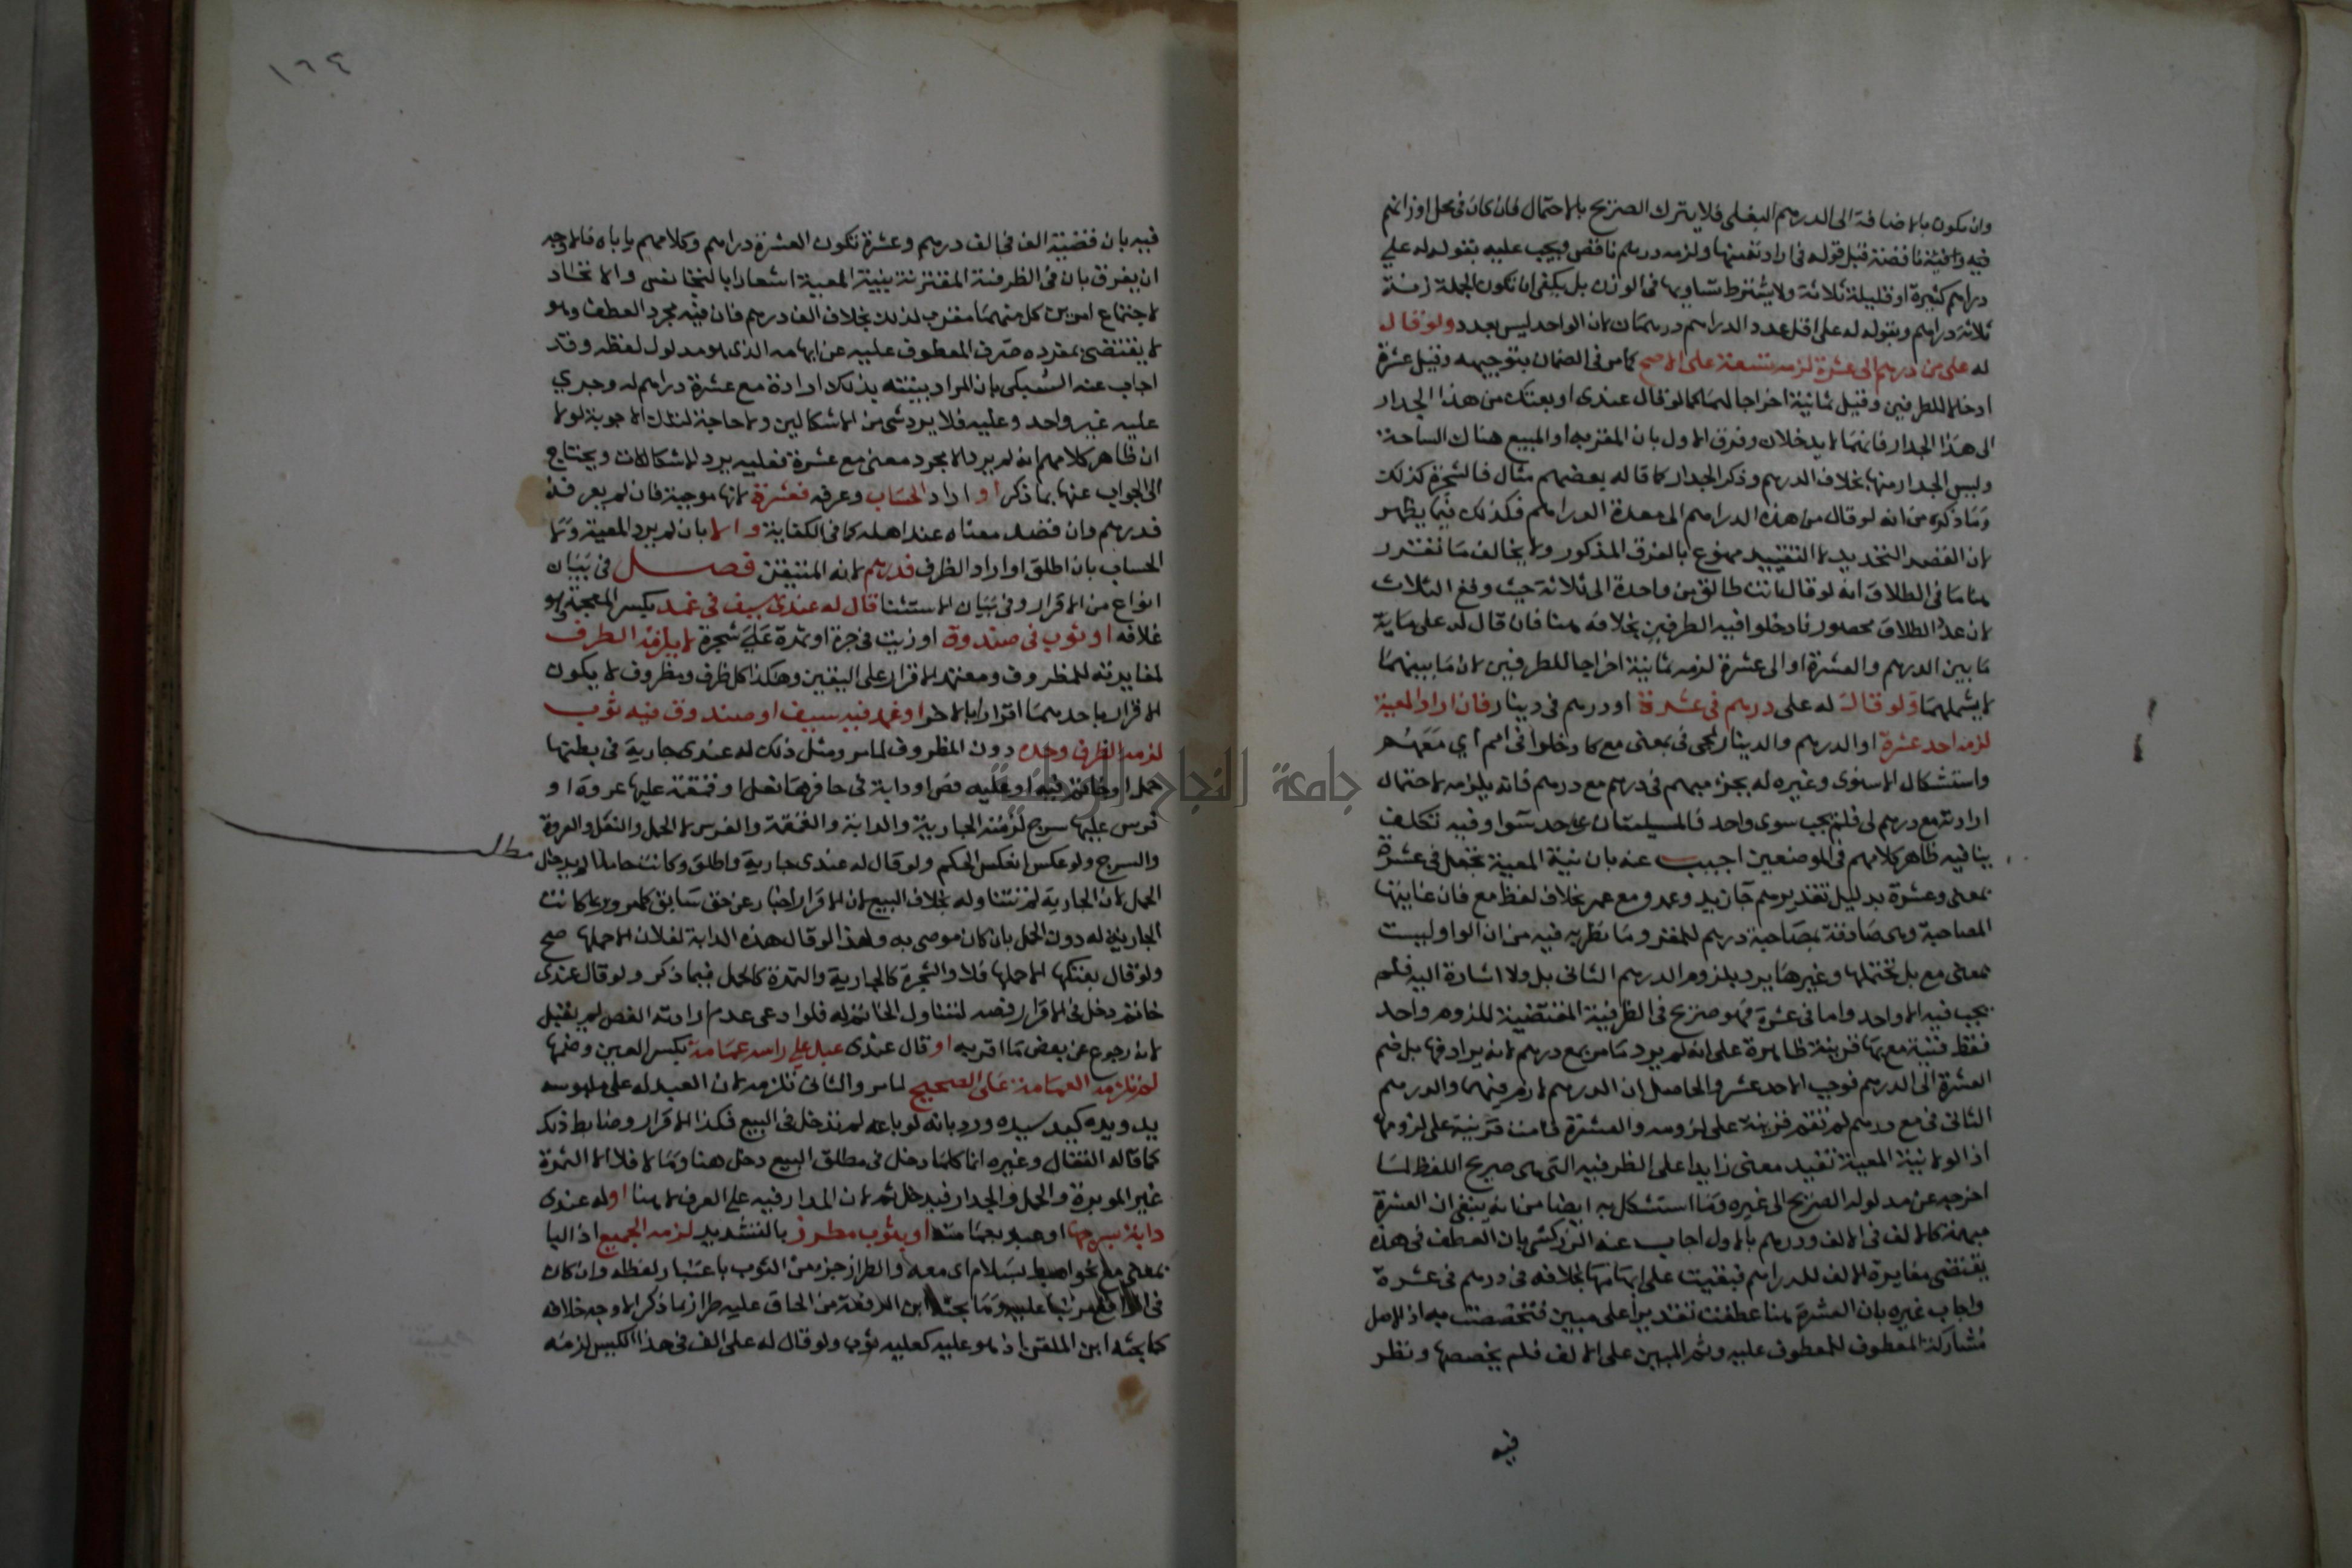 وان يكون بالاضافة الى الدرهم البغلى فلا يترك الصريح بالاحتمال فان كان فى محل اوزانهم
فيه وافية ناقصة قبل قوله فى اراد نقصتها ولزمه درهم ناقص ويجب عليه بقوله له على
دراهم كثيرة او قليلة ثلاثة ولا يشترط تساويها فى الوزن بل يكفى ان تكون الجملة زنة
ثلاثة دراهم وبقوله له على اقل عدد الدراهم درهمان لان الواحد ليس بعدد ولو قال
له على من درهم الى عشرة لزمه تسعة على الاصح كما مر فى الضمان بتوجيهه وقيل عشرة
ادخالا للطرفين وقيل ثمانية اخراجا لهما كما لو قال عندى او بعتك من هذا الجدار
الى هذا الجدار فانهما لا يدخلان وفرق الاول بان المقر به او المبيع هناك الساحة
وليس الجدار منها بخلاف الدرهم وذكر الجدار كما قاله بعضهم مثال فالشجرة كذلك
وما ذكره من انه لو قال من هذه الدراهم الى هذه الدراهم فكذلك فيما يظهر
لان القصد التحديد لا التقييد ممنوع بالفرق المذكور ولا يخالف ما تقرر
هنا ما فى الطلاق انه لو قال انت طالق من واحدة الى ثلاثة حيث وقع الثلاث
لان عدد الطلاق محصور فادخلوا فيه الطرفين بخلافه هنا فان قال له على ماية
ما بين الدرهم والعشرة او الى عشرة لزمه ثمانية اخراجا للطرفين لان ما بينهما
لا يشملهما ولو قال له على درهم فى عشرة او درهم فى دينار فان اراد المعية
لزمه احد عشرة او الدرهم والدينار لمجى فى بمعنى مع كادخلوا فى امم اي معهم
واستشكال الاسنوى وغيره له بجزم مبهم فى درهم مع درهم فانه يلزمه لاحتمال
ارادته مع درهم لى فلم يجب سوى واحد فالمسيلتان على حد سوا وفيه تكلف
ينافيه ظاهر كلامهم فى الموضعين اجيب عنه بان نية المعية تجعل فى عشرة
بمعنى وعشرة بدليل تقديرهم جا زيد وعمرو مع عمر بخلاف لفظ مع فان غايتها
المصاحبة وهى صادقة بمصاحبة درهم للمقر وما نظر به فيه من ان الواو ليست
بمعنى مع بل تحتملها وغيرها يرد بلزوم الدرهم الثانى بل ولا اشارة اليه فلم
يجب فيه الا واحد واما فى عشرة فهو صريح فى الظرفية المقتضية للزوم واحد
فقط فنية مع بها قرينة ظاهرة على انه لم يرد ما مر مع درهم لانه يرادفها بل ضم
العشرة الى الدرهم فوجب الاحد عشر والحاصل ان الدرهم لازم فيهما والدرهم
الثانى فى مع درهم لم تقم قرينة على لزومه والعشرة قامت قرينة على لزومها
اذ لولا نية المعية تفيد معنى زايدا على الظرفيه التى هى صريح اللفظ لما
اخرجه عن مدلوله الصريح الى غيره وما استشكل به ايضا من انه ينبغى ان العشرة
مبهمة كالالف فى الالف ودرهم بالاولى اجاب عنه الزركشى بان العطف فى هذه
يقتضى مغايرة للالف للدراهم فبقيت على ابهامها بخلافه فى درهم فى عشرة
واجاب غيره بان العشرة هنا عطفت تقديرا على مبين فتخصصت به اذ الاصل
مشاركة المعطوف للمعطوف عليه وثم المبين على الالف فلم يخصصها ونظر
فيه
١٦٤
فيه بان قضيته الف فى الف درهم وعشرة تكون العشرة دراهم وكلامهم ياباه فالاوجه
ان يفرق بان فى الظرفية المقترنة بنية المعية اشعارا بالتجانس والاتحاد
لاجتماع امرين كل منهما مقرب لذلك بخلاف الف درهم فان فيه مجرد العطف وهو
لا يقتضى بمفرده صرف المعطوف عليه عن ابهامه الذى هو مدلول لفظه وقد
اجاب عنه السبكى بان المراد بنيته بذلك ارادة مع عشرة دراهم له وجرى
عليه غير واحد وعليه فلا يرد شى من الاشكالين ولا حاجة لتلك الاجوبة لولا
ان ظاهر كلامهم انه لم يرد الا مجرد معنى مع عشرة فعليه يرد الاشكالان ويحتاج
الى الجواب عنها بما ذكر او اراد الحساب وعرفه فعشرة لانها موجبة فان لم يعرفه
فدرهم وان قصد معناه عند اهله كما فى الكفاية والا بان لم يرد المعية ولا
الحساب بان اطلق او اراد الظرف فدرهم لانه المتيقن فصل فى بيان
انواع من الاقرار وفى بيان الاستثنا قال له عندى سيف فى غمد بكسر المعجمة وهو
غلافه او ثوب فى صندوق او زيت فى جرة او تمرة على شجرة لا يلزمه الظرف
لمغايرته للمظروف ومعتمد الاقرار على اليقين وهكذا كل ظرف ومظروف لا يكون
الاقرار باحدهما اقرارا بالاخر او غمد فيه سيف او صندوق فيه ثوب
لزمه الظرف وحده دون المظروف لما مر ومثل ذلك له عندى جارية فى بطنها
حمل او خاتم فيه او عليه فص او دابة فى حافرها نعل او قمقمة عليها عروة او
فرس عليها سرج لزمته الجارية والدابة والقمقمة والفرس لا الحمل والنعل والعروة
والسرج ولو عكس انعكس الحكم ولو قال له عندى جارية واطلق وكانت حاملا لم يدخل
مطلب
الحمل لان الجارية لم تتناوله بخلاف البيع لان الاقرار اخبار عن حق سابق كما مر وربما كانت
الجارية له دون الحمل بان كان موصى به ولهذا لو قال هذه الدابة لفلان الا حملها صح
ولو قال بعتكها الا حملها فلا والشجرة كالجارية والثمرة كالحمل فيما ذكر ولو قال عندى
خاتم دخل فى الاقرار فصه لتناول الخاتم له فلو ادعى عدم ارادته الفص لم يقبل
لانه رجوع عن بعض ما اقر به او قال عندى عبد على راسه عمامة بكسر العين وضمها
لم تلزمه العمامة على الصحيح لما مر والثانى تلزمه لان العبد له على ملبوسه
يد ويده كيد سيده ورد بانه لو باعه لم تدخل فى البيع فكذا الاقرار وضابط ذلك
كما قاله القفال وغيره ان كلما دخل فى مطلق البيع دخل هنا وما لا فلا الا الثمرة
غير الموبرة والحمل والجدار فيدخل ثم لان المدار فيه على العرف لا هنا او له عندى
دابة بسرجها او عبد بعمامته او بثوب مطرز بالتشديد لزمه الجميع اذ البا
بمعنى مع نحو اهبط بسلام اى معه والطراز جزء من الثوب باعتبار لفظه وان كان
فى عليه وما بحثه ابن الرفعة من الحاق عليه طراز بما ذكر الاوجه خلافه
كما بحثه ابن الملقن اذ هو عليه كعليه ثوب ولو قال له على الف فى هذا الكيس لزمه
جامعة النجاح الوطنية